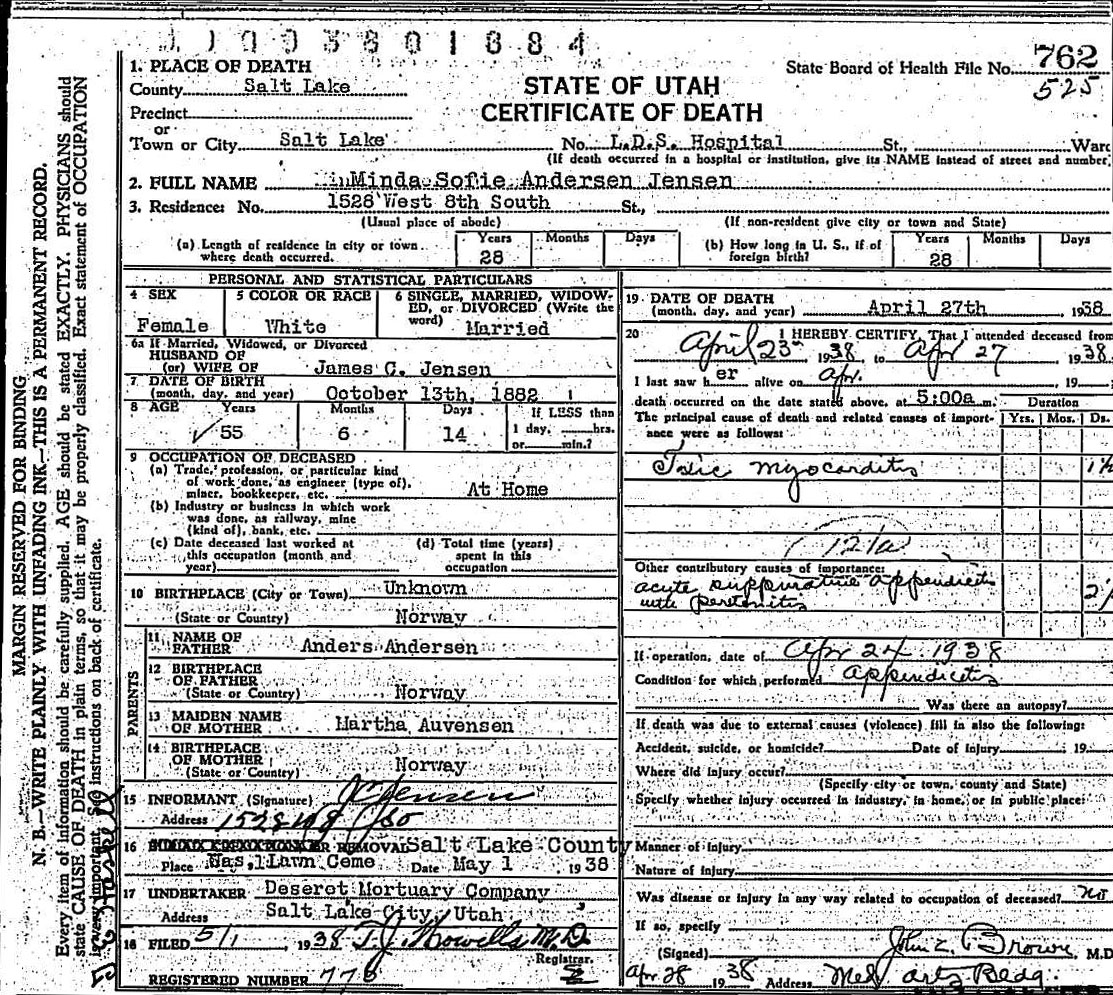 1. PLACE OF DEATH
County Salt Lake
Precinct
or
Town or City Salt Lake
STATE OF UTAH
CERTIFICATE OF DEATH
State Board of Health File No. 762
525
No. L.D.S. Hospital St., Ward
(If death occurred in a hospital or institution, give its NAME instead of street and number.
2. FULL NAME Minda Sofie Andersen Jensen
3. Residence: No. 1528 West 8th South St.,
(Usual place of abode) (If non-resident give city or town and State)
(a) Length of residence in city or town where death occurred. Years 28 Months Days
(b) How long in U. S., if of foreign birth? Years 28 Months Days
PERSONAL AND STATISTICAL PARTICULARS
4 SEX Female
5 COLOR OR RACE White
6 SINGLE, MARRIED, WIDOWED, or DIVORCED (Write the word) Married
6a If Married, Widowed, or Divorced
HUSBAND OF
(or) WIFE OF James C. Jensen
7 DATE OF BIRTH
(month, day, and year) October 13th, 1882
8 AGE Years 55 Months 6 Days 14 If LESS than 1 day, hrs. or min.?
9 OCCUPATION OF DECEASED
(a) Trade, profession, or particular kind
of work done, as engineer (type of),
miner, bookkeeper, etc. At Home
(b) Industry or business in which work
was done, as railway, mine
(kind of), bank, etc.
(c) Date deceased last worked at
this occupation (month and
year)
(d) Total time (years)
spent in this
occupation
10 BIRTHPLACE (City or Town) Unknown
(State or Country) Norway
PARENTS
11 NAME OF
FATHER Anders Andersen
12 BIRTHPLACE
OF FATHER
(State or Country) Norway
13 MAIDEN NAME
OF MOTHER Martha Auvensen
14 BIRTHPLACE
OF MOTHER
(State or Country) Norway
15 INFORMANT (Signature) J C Jensen
Address 1528
16 OR REMOVAL Salt Lake County
Place Was, Lawn Ceme Date May 1 1938
17 UNDERTAKER Deseret Mortuary Company
Address Salt Lake City, Utah
18 FILED 5/1 1938 T. J. Howells M.D.
Registrar.
REGISTERED NUMBER 776
19 DATE OF DEATH
(month, day, and year) April 27th 1938
20 I HEREBY CERTIFY, That I attended deceased from
April 23 1938 to Apr 27 1938
I last saw her alive on Apr. 19
death occurred on the date stated above, at 5:00a m.
The principal cause of death and related causes of importance were as follows:
Duration
Yrs. Mos. Ds.
Toxic myocarditis
121a
Other contributory causes of importance:
acute suppurative appendicitis
with peritonitis
If operation, date of Apr 24 1938
Condition for which performed Appendicitis
Was there an autopsy?
If death was due to external causes (violence) fill in also the following:
Accident, suicide, or homicide? Date of Injury 19
Where did injury occur?
(Specify city or town, county and State)
Specify whether injury occurred in industry, in home, or in public place:
Manner of Injury
Nature of Injury
Was disease or injury in any way related to occupation of deceased? no
If so, specify
(Signed) John Z Brown, M.D
Apr 28 1938 Address Med Arts Bldg.
MARGIN RESERVED FOR BINDING
N. B.—WRITE PLAINLY WITH UNFADING INK—THIS IS A PERMANENT RECORD.
Every item of information should be carefully supplied. AGE should be stated EXACTLY. PHYSICIANS should
state CAUSE OF DEATH in plain terms, so that it may be properly classified. Exact statement of OCCUPATION
is very important. See instructions on back of certificate.